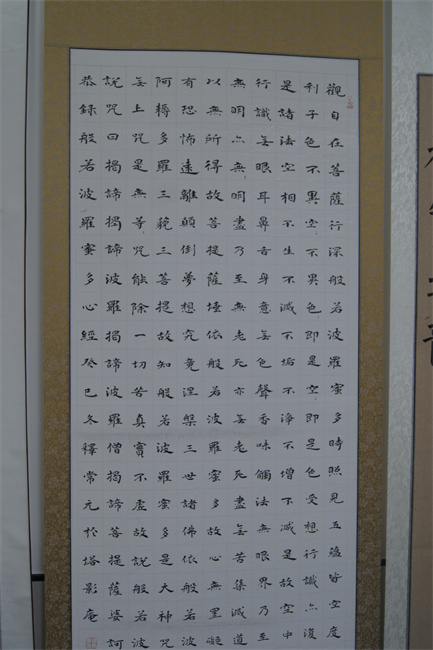 觀自在菩薩行深般若波羅蜜多時照見五蘊皆空度
利子色不異空不異色即是空即是色受想行識亦復
是諸法空相不生不滅不垢不淨不增不減是故空中
行識无眼耳鼻舌身意无色聲香味觸法無眼界乃至
無明亦無明盡乃至無老死亦无老死盡无苦集滅道
以無所得故菩提薩埵依般若波羅蜜多故心無罣礙
有恐怖遠離顛倒夢想究竟涅槃三世諸佛依般若波
阿耨多羅三藐三菩提故知般若波羅蜜多是大神咒
无上咒是無等咒能除一切苦真實不虛故說般若波
說咒曰揭諦揭諦波羅揭諦波羅僧揭諦菩提薩婆訶
恭錄般若波羅蜜多心經癸巳冬釋常元於塔影庵